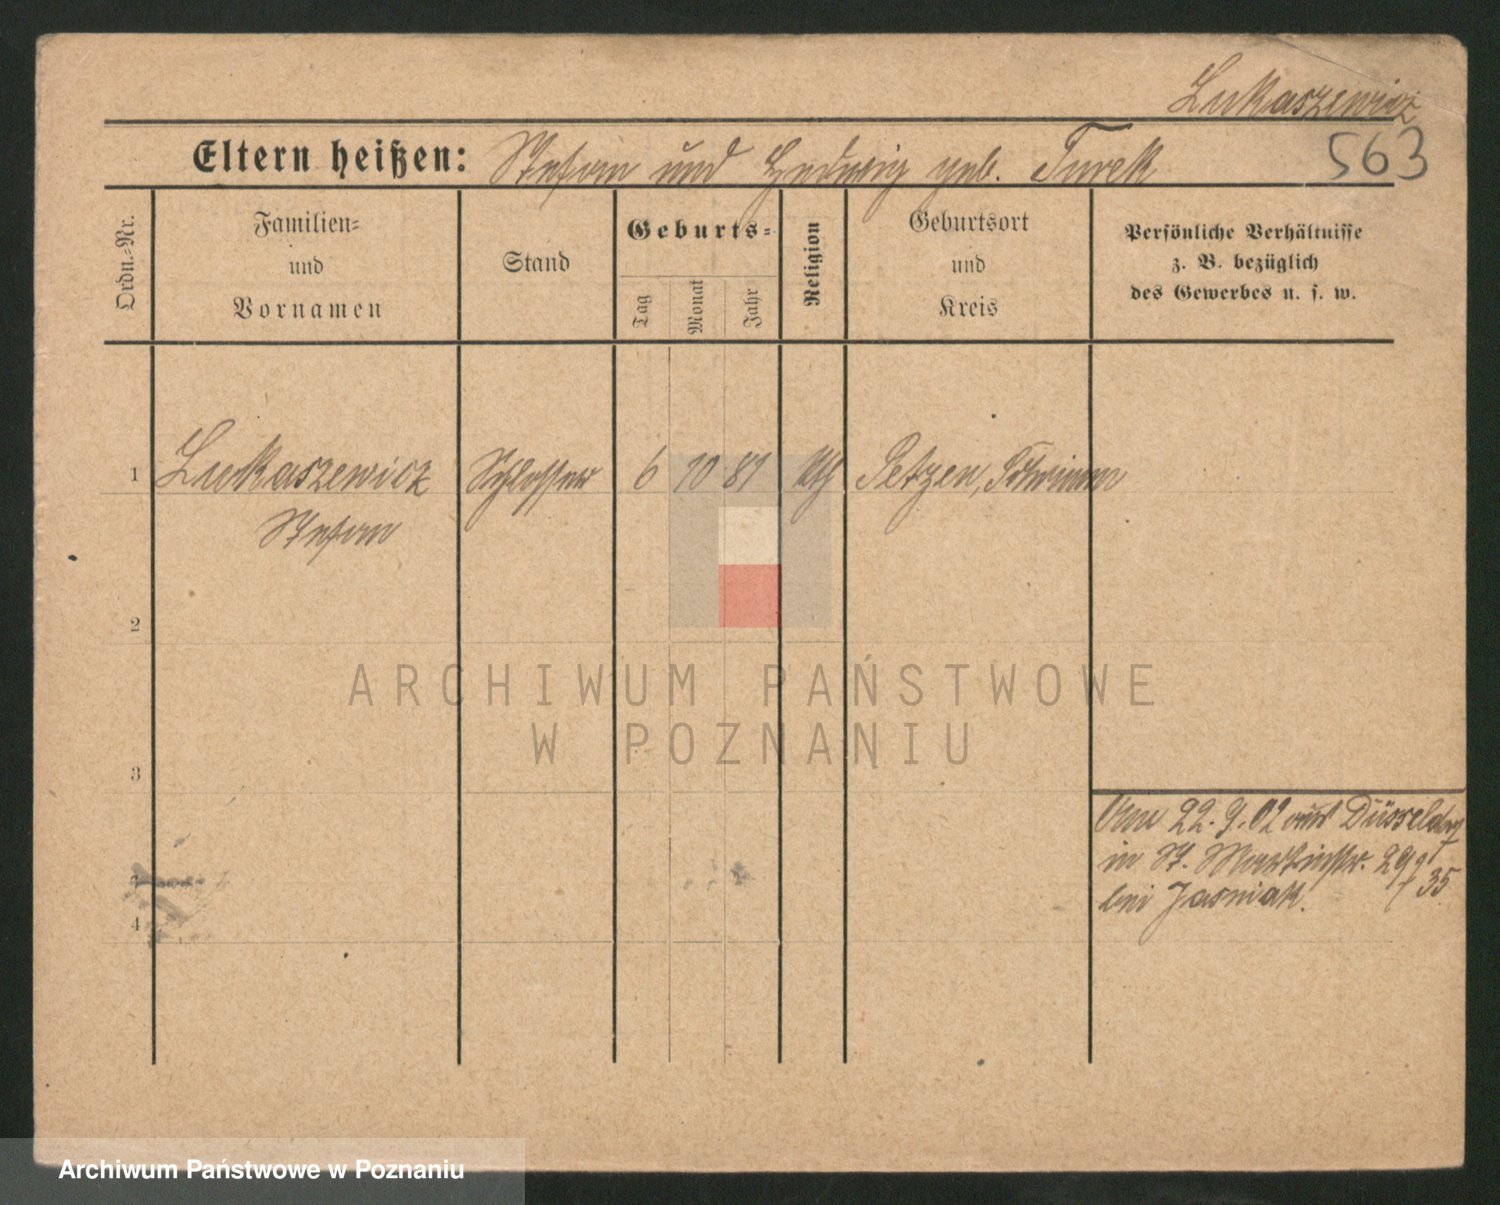 Lukaszewicz
Eltern heißen: Stefan und Hedwig geb. Turek
563
Ordn.-Nr.
Familien-
und
Vornamen
Stand
Geburts-
Tag
Monat
Jahr
Religion
Geburtsort
und
Kreis
Persönliche Verhältnisse
z. B. bezüglich
des Gewerbes u. s. w.
1 Lukaszewicz Schlosser 6 10 81 kth Petzen,
Stefan
2
3
4
22.9.02 aus Düsseldorf
in St. Martinstr. 29
bei Jasniak. 35
ARCHIWUM PAŃSTWOWE
W POZNANIU
Archiwum Państwowe w Poznaniu